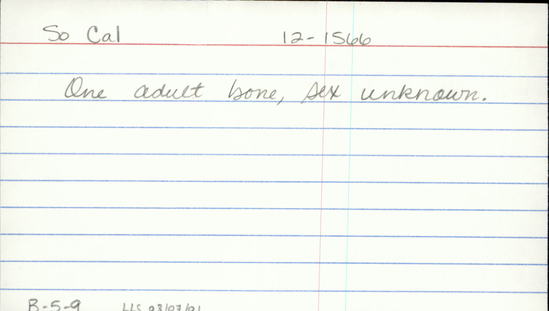 So Cal 12-1566
One adult bone, sex unknown.
B-5-9 LLS